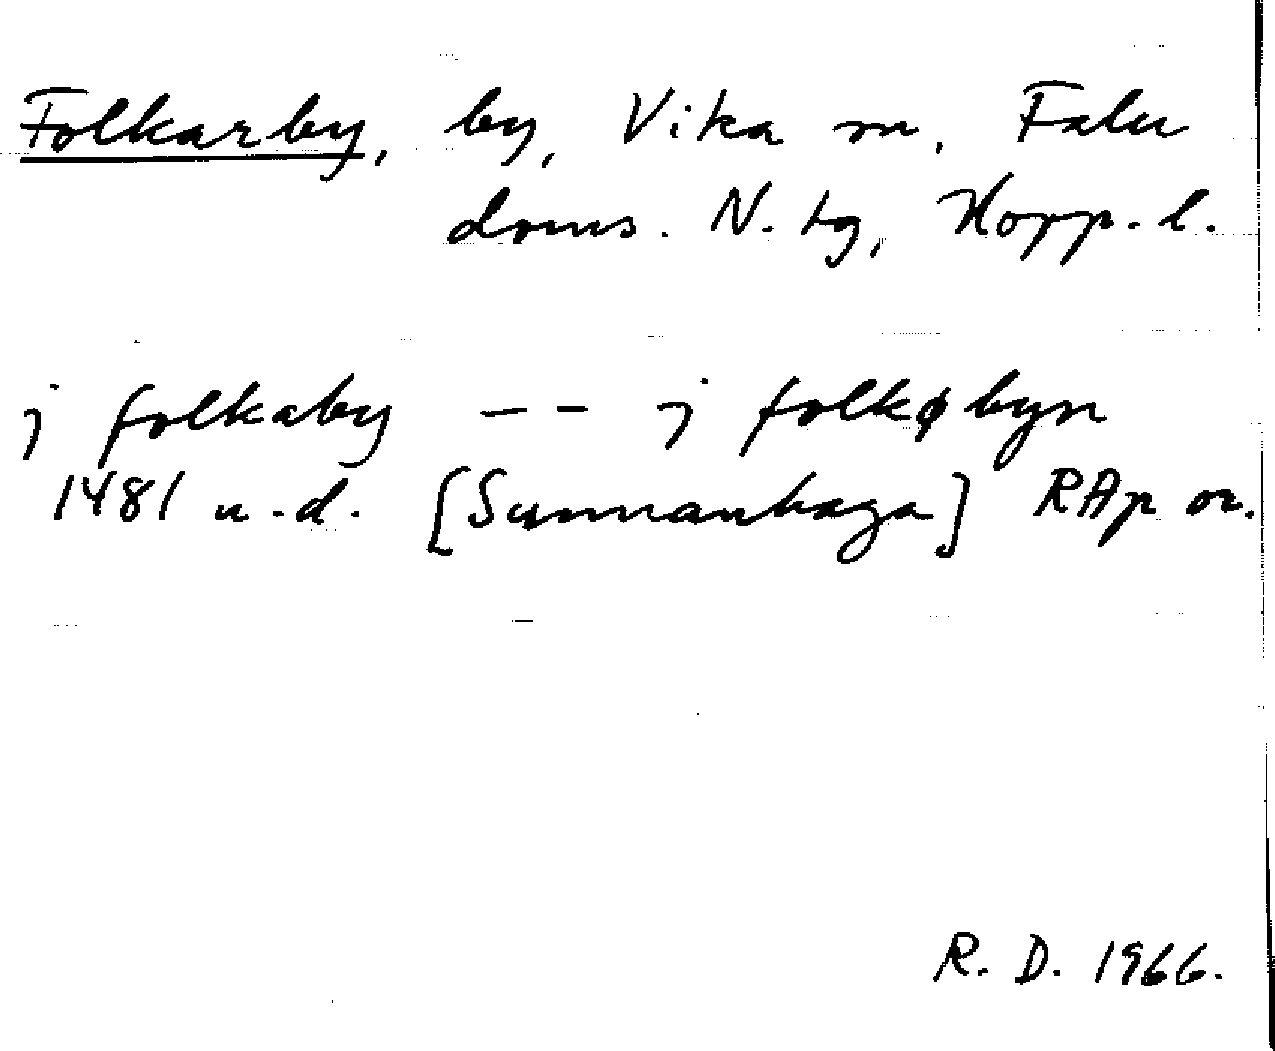 Folkarby, by, Vika sn, Falu
doms. N. tg, Kopp. l.
j folkaby -- j folkøbyn
1481 u.d. [Sunnanhaga] RAp or.
R. D. 1966.